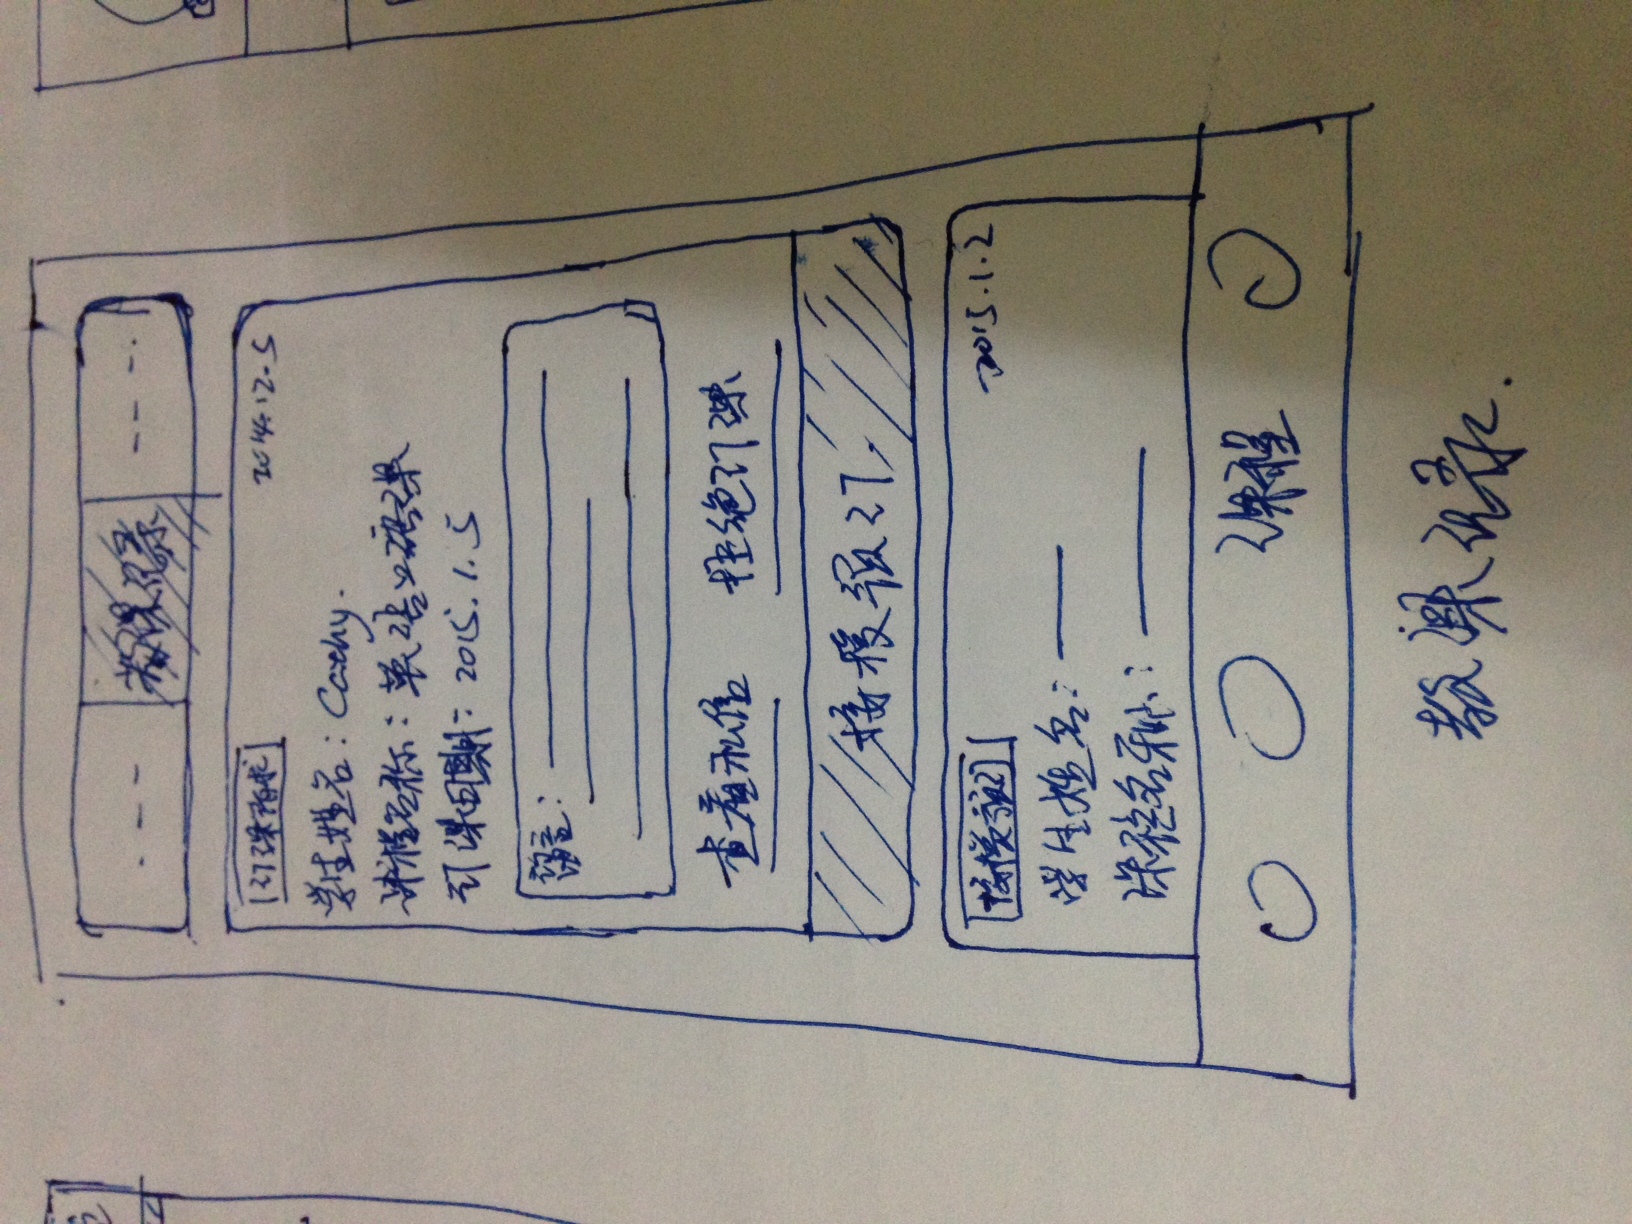 教课记录
订课请求 2014.12.5
学生姓名：Cathy.
课程名称：英语口语课
订课日期：2015.1.5
留言：
查看私信 拒绝订课
接受预订
接受预订 2015.1.2
学生姓名：
课程名称：
课程
教课记录.